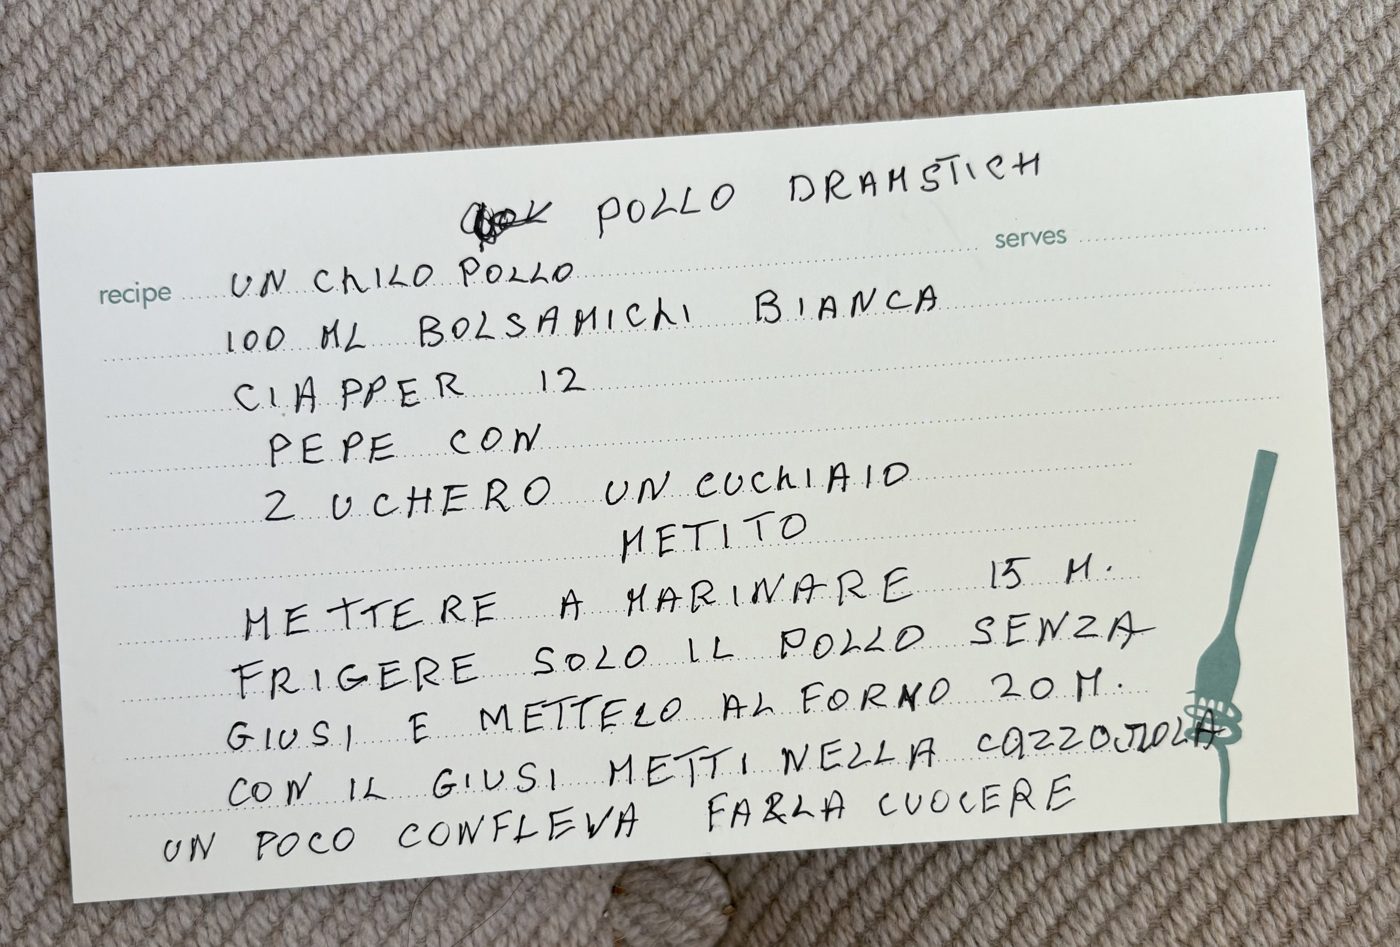 POLLO DRAMSTICH
serves
recipe UN ChILO POLLO
100 ML BOLSAMIChI BIANCA
CIAPPER 12
PEPE CON
2 UCHERO UN CUChIAIO
METITO
METTERE A MARINARE 15 M.
FRIGERE SOLO IL POLLO SENZA
GIUSI E METTELO AL FORNO 20 M.
CON IL GIUSI METTI NELLA
UN POCO CONFLEVA FARLA CUOCERE